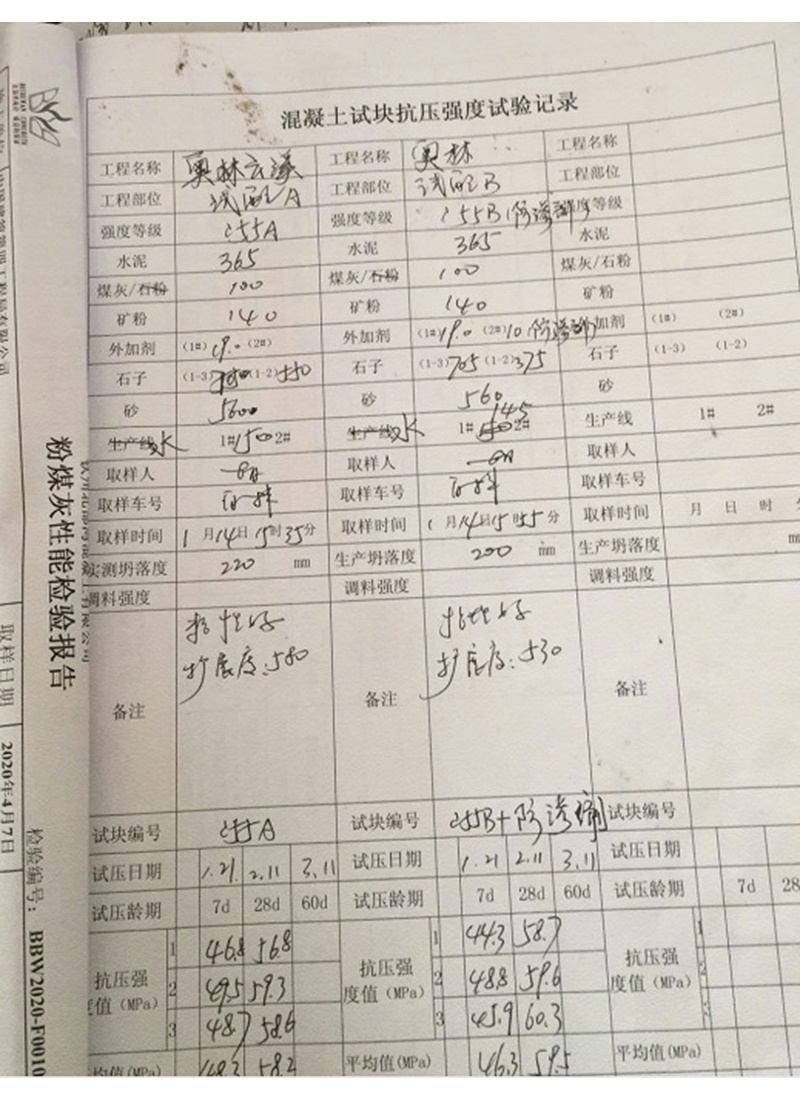 混凝土试块抗压强度试验记录
工程名称 奥林云溪 工程名称 奥林 工程名称
工程部位 试配A 工程部位 试配B 工程部位
强度等级 C55A 强度等级 C55B(防渗剂) 强度等级
水泥 365 水泥 365 水泥
煤灰/石粉 100 煤灰/石粉 100 煤灰/石粉
矿粉 140 矿粉 140 矿粉
外加剂 (1#) 19.0 (2#) 外加剂 (1#) 19.0 (2#) 10 防渗剂 外加剂 (1#) (2#)
石子 (1-3) (1-2) 石子 (1-3) 705 (1-2) 375 石子 (1-3) (1-2)
砂 砂 560 砂
生产线 水 1# 150 2# 生产线 水 1# 145 2# 生产线 1# 2#
取样人 取样人 取样人
取样车号 取样车号 取样车号
取样时间 1月14日15时35分 取样时间 1月14日15时55分 取样时间 月 日 时 分
实测坍落度 220 mm 生产坍落度 200 mm 生产坍落度 mm
调料强度 调料强度 调料强度
备注 和性好 备注 和性好 备注
扩展度:580 扩展度:530
试块编号 C55A 试块编号 C55B+防渗剂 试块编号
试压日期 1.21 2.11 3.11 试压日期 1.21 2.11 3.11 试压日期
试压龄期 7d 28d 60d 试压龄期 7d 28d 60d 试压龄期 7d 28
抗压强度值(MPa) 抗压强度值(MPa) 抗压强度值(MPa)
1 46.8 56.8 1 44.3 58.7 1
2 49.5 59.3 2 48.8 59.6 2
3 48.7 58.6 3 45.9 60.3 3
平均值(MPa) 48.3 58.2 平均值(MPa) 46.3 59.5 平均值(MPa)
粉煤灰性能检验报告
检验编号：BBW2020-F0010
取样日期 2020年4月7日